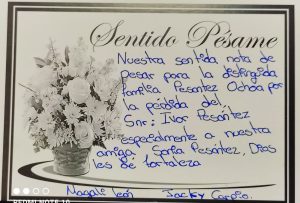 Sentido Pésame
Nuestra sentida nota de
pesar para la distinguida
familia Pesantez Ochoa por
la pérdida del
Snr: Ivor Pesántez
especialmente a nuestra
amiga Sarla Pesántez, Dios
les de fortaleza
Magali León Jacky Carpio.